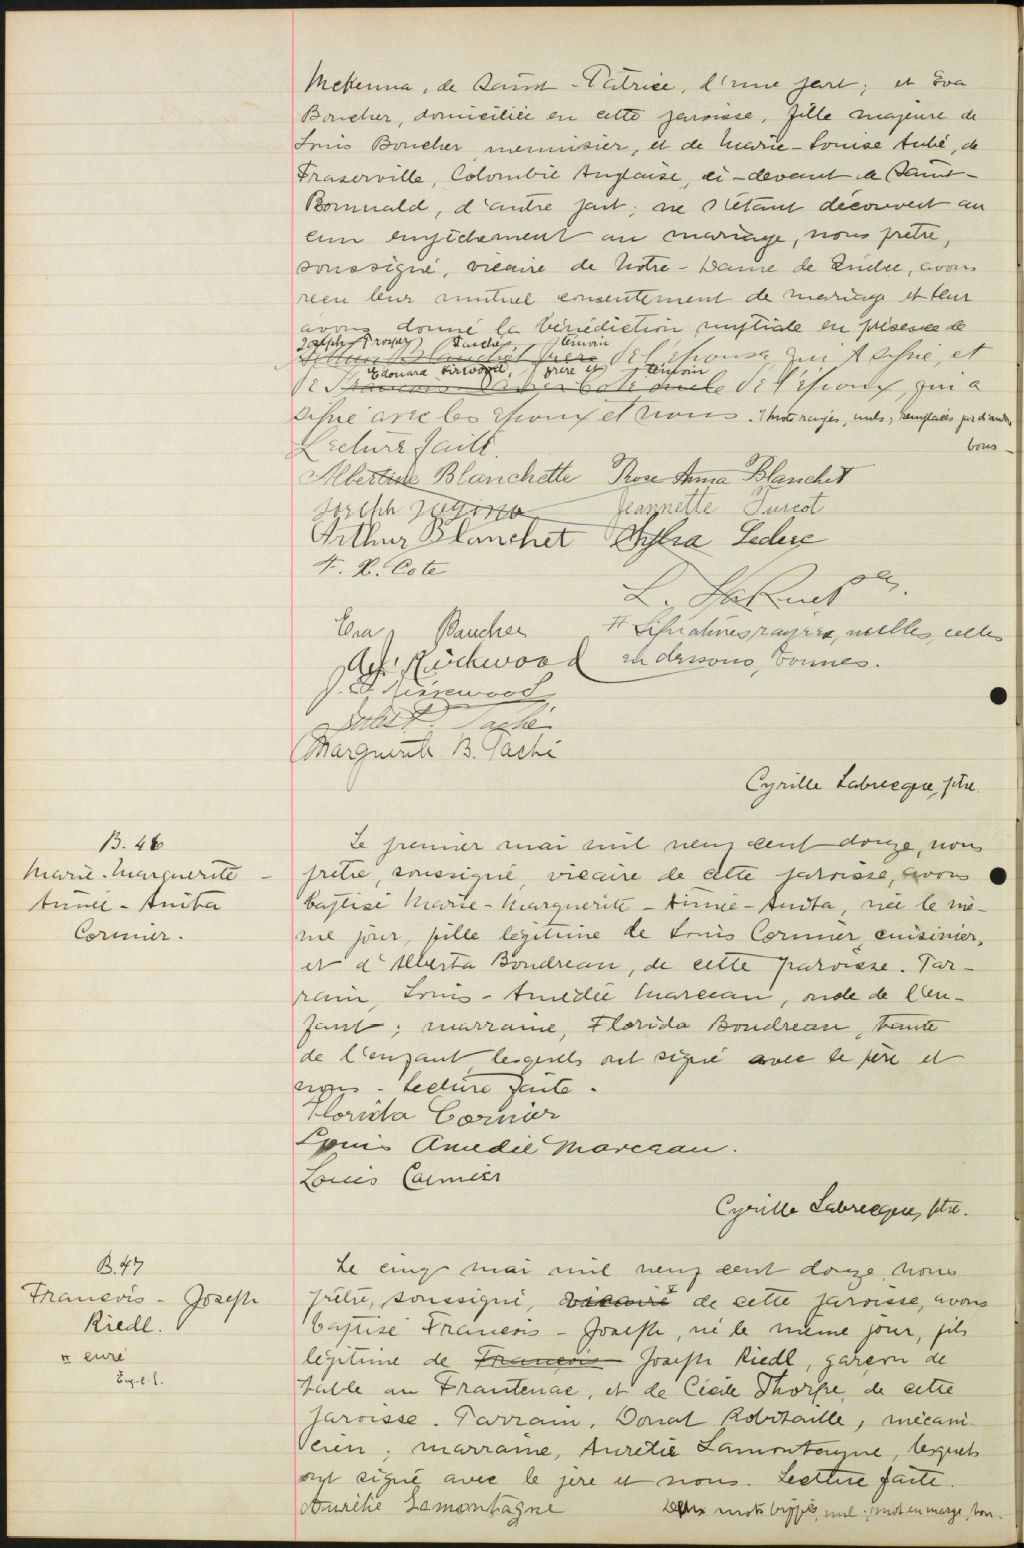 McKenna, de Saint-Patrice, d'une part; et Eva
Boucher, domiciliée en cette paroisse, fille majeure de
Louis Boucher menuisier, et de Marie-Louise Aubé, de
Fraserville, Colombie Anglaise, ci-devant de Saint-
Romuald, d'autre part; ne s'étant découvert au
cun empêchement au mariage, nous prêtre,
soussigné, vicaire de Notre-Dame de Québec, avons
reçu leur mutuel consentement de mariage et leur
avons donné la bénédiction nuptiale en présence de
Joseph Prosper Taché, témoin
Arthur Blanchet, frère de l'épouse, qui a signé, et
Edouard Kirwood, frère et témoin
de de l'époux, qui a
signé avec les époux et nous. mots rayés, nuls, remplacés par d'autres
bons -
Lecture faite.
Albertine Blanchette Rose Anna Blanchet
Joseph Jeannette Turcot
Arthur Blanchet Sylva Leclerc
F. X. Cote
L. H. Paquet ptre.
Eva Boucher # Signatures rayées, nulles, celles
Kirckwood en dessous, bonnes.
J.
Taché
Marguerite B. Taché
Cyrille Labrecque, ptre.
B. 46
Marie-Marguerite -
Aimée-Anita
Cormier.
Le premier mai mil neuf cent douze, nous
prêtre, soussigné, vicaire de cette paroisse, avons
baptisé Marie-Marguerite-Aimée-Anita, née le mê-
me jour, fille légitime de Louis Cormier, cuisinier,
et d'Alberta Boudreau, de cette paroisse. Par-
rain, Louis-Amédée Marceau, oncle de l'en-
fant; marraine, Florida Boudreau, tante
de l'enfant, lesquels ont signé avec le père et
nous. Lecture faite.
Florida Cormier
Louis Amedée Marceau.
Louis Cormier
Cyrille Labrecque, ptre.
B. 47
Francois-Joseph
Riedl.
curé
Le cinq mai mil neuf cent douze, nous
prêtre, soussigné, vicaire de cette paroisse, avons
baptisé Francois-Joseph, né le même jour, fils
légitime de François Joseph Riedl, garçon de
table au Frontenac, et de Cécile Thorpe, de cette
paroisse. Parrain, Donat Robitaille, mécani-
cien; marraine, Aurélie Lamontagne, lesquels
ont signé avec le père et nous. Lecture faite.
Aurélie Lamontagne Deux mots biffés, nul; mot en marge, bon.